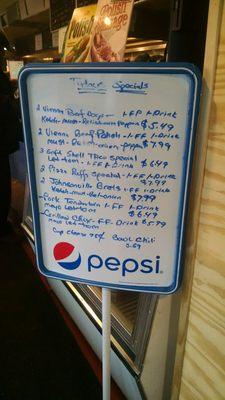 Polish
Sausage
Polish
Specials
2 Vienna Beef Dogs - 1-FF 1-Drink
Ketch-Must-Relish-onion-peppers $5.49
2 Vienna Beef Polish - 1-FF 1-Drink
must-Relish-onion-peppers $7.99
3 Soft Shell Taco Special
Let-tom - 1-FF 1-Drink $6.49
2 Pizza Puffs Special 1-FF 1-Drink
$7.99
2 Johnsonville Brats 1-FF 1-Drink
Ketch-must-Rel-onion $7.99
Pork Tenderloin 1-FF 1-Drink
mayo Let-tom $6.49
Chix-FF-Drink 5.79
mayo Let-tom
Cup Cheese 75¢ Bowl Chili
pepsi